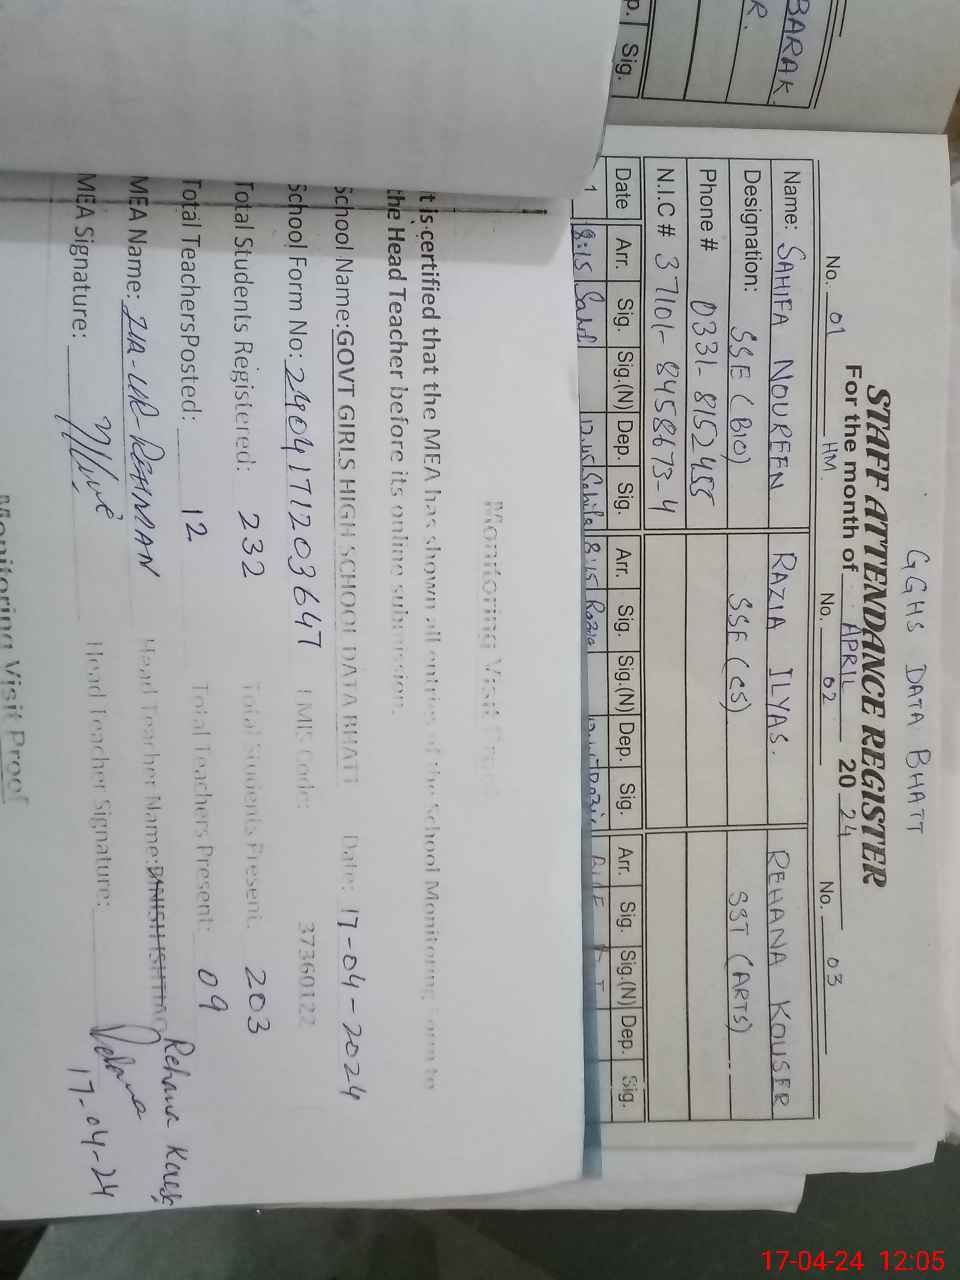 BARAK.
R.
p. Sig.
GGHS DATA BHATT
STAFF ATTENDANCE REGISTER
For the month of APRIL 20 24
No. 01 HM. No. 02 No. 03
Name: SAHIFA NOUREEN RAZIA ILYAS. REHANA KOUSER
Designation: SSE (BIO) SSE (CS) SST (ARTS)
Phone # 0331-8152455
N.I.C # 37101-8458673-4
Date Arr. Sig. Sig.(N) Dep. Sig. Arr. Sig. Sig.(N) Dep. Sig. Arr. Sig. Sig.(N) Dep. Sig.
1 8:15 Sahif 12:45 Sahifa 8:15 Razia
Monitoring Visit Proof
It is certified that the MEA has shown all entries of the School Monitoring Form to
the Head Teacher before its online submission.
School Name: GOVT GIRLS HIGH SCHOOL DATA BHATT Date: 17-04-2024
School Form No: 2404171203647 EMIS Code: 37360122
Total Students Registered: 232 Total Students Present: 203
Total TeachersPosted: 12 Total Teachers Present: 09
MEA Name: ZIA-UR-REHMAN Head Teacher Name: DANISH ISHTIAQ Rehana Kousr
MEA Signature: Head Teacher Signature: Rehana
17-04-24
Monitoring Visit Proof
17-04-24 12:05